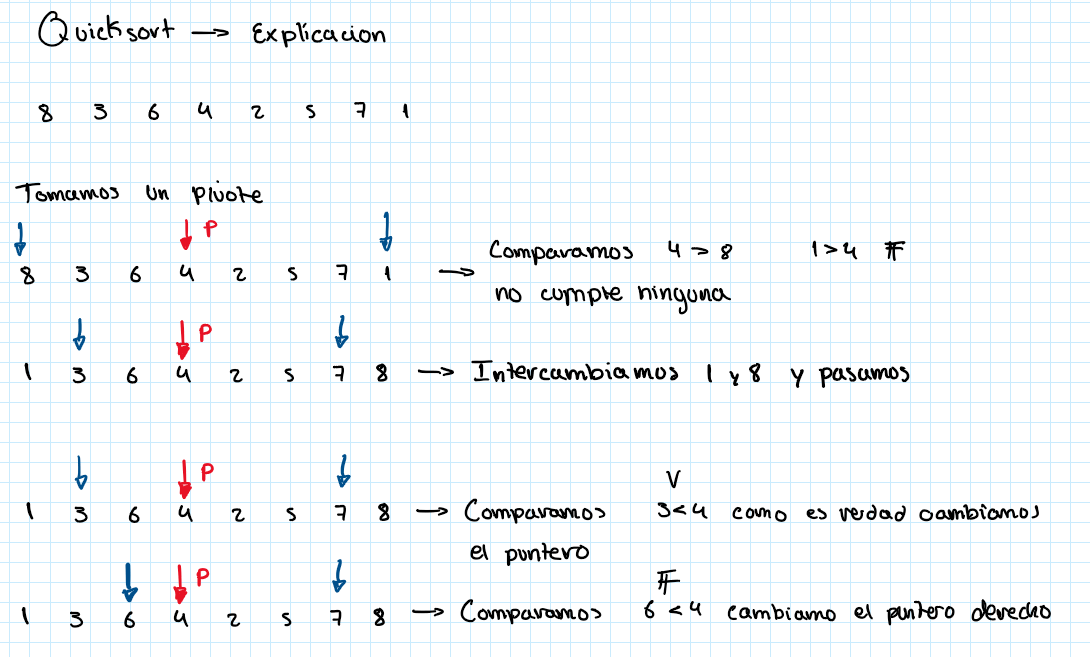 Quicksort → Explicacion
8 3 6 4 2 5 7 1
Tomamos un pivote
P
8 3 6 4 2 5 7 1 → Comparamos 4 > 8 1 > 4 F
no cumple ninguna
P
1 3 6 4 2 5 7 8 → Intercambiamos 1 y 8 y pasamos
P V
1 3 6 4 2 5 7 8 → Comparamos 3<4 como es verdad cambiamos
el puntero
P F
1 3 6 4 2 5 7 8 → Comparamos 6 < 4 cambiamo el puntero derecho